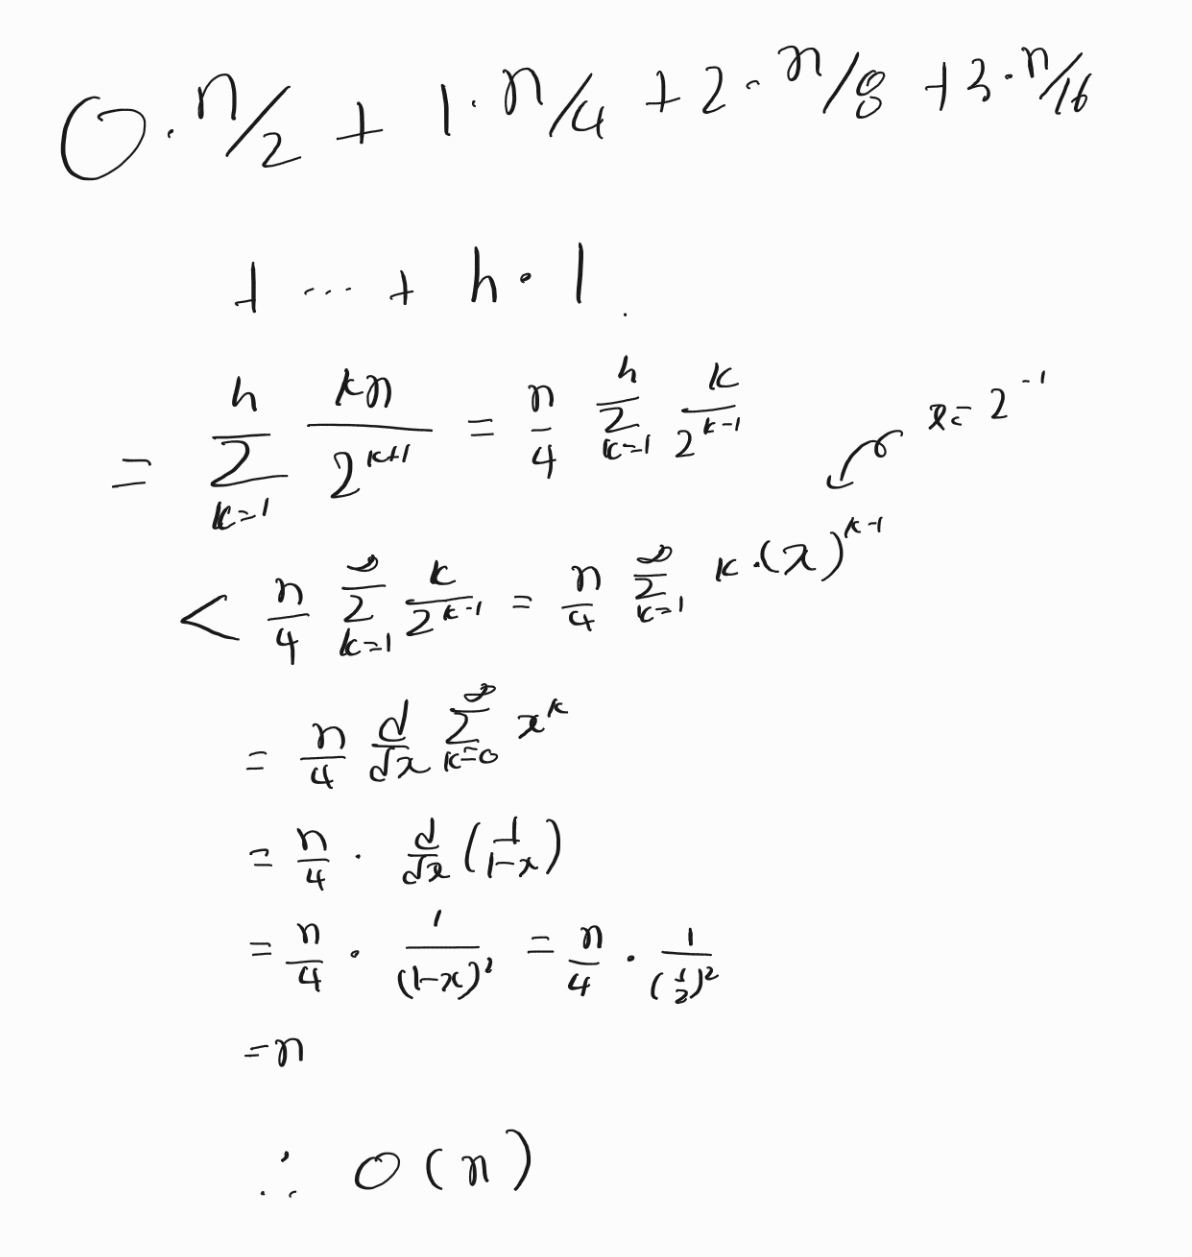 0 · n/2 + 1 · n/4 + 2 · n/8 + 3 · n/16
+ ... + h · 1
= \sum_{k=1}^{h} \frac{kn}{2^{k+1}} = \frac{n}{4} \sum_{k=1}^{h} \frac{k}{2^{k-1}} x = 2^{-1}
< \frac{n}{4} \sum_{k=1}^{∞} \frac{k}{2^{k-1}} = \frac{n}{4} \sum_{k=1}^{∞} k · (x)^{k-1}
= \frac{n}{4} \frac{d}{dx} \sum_{k=0}^{∞} x^k
= \frac{n}{4} · \frac{d}{dx} (\frac{1}{1-x})
= \frac{n}{4} · \frac{1}{(1-x)^2} = \frac{n}{4} · \frac{1}{(\frac{1}{2})^2}
= n
∴ O(n)